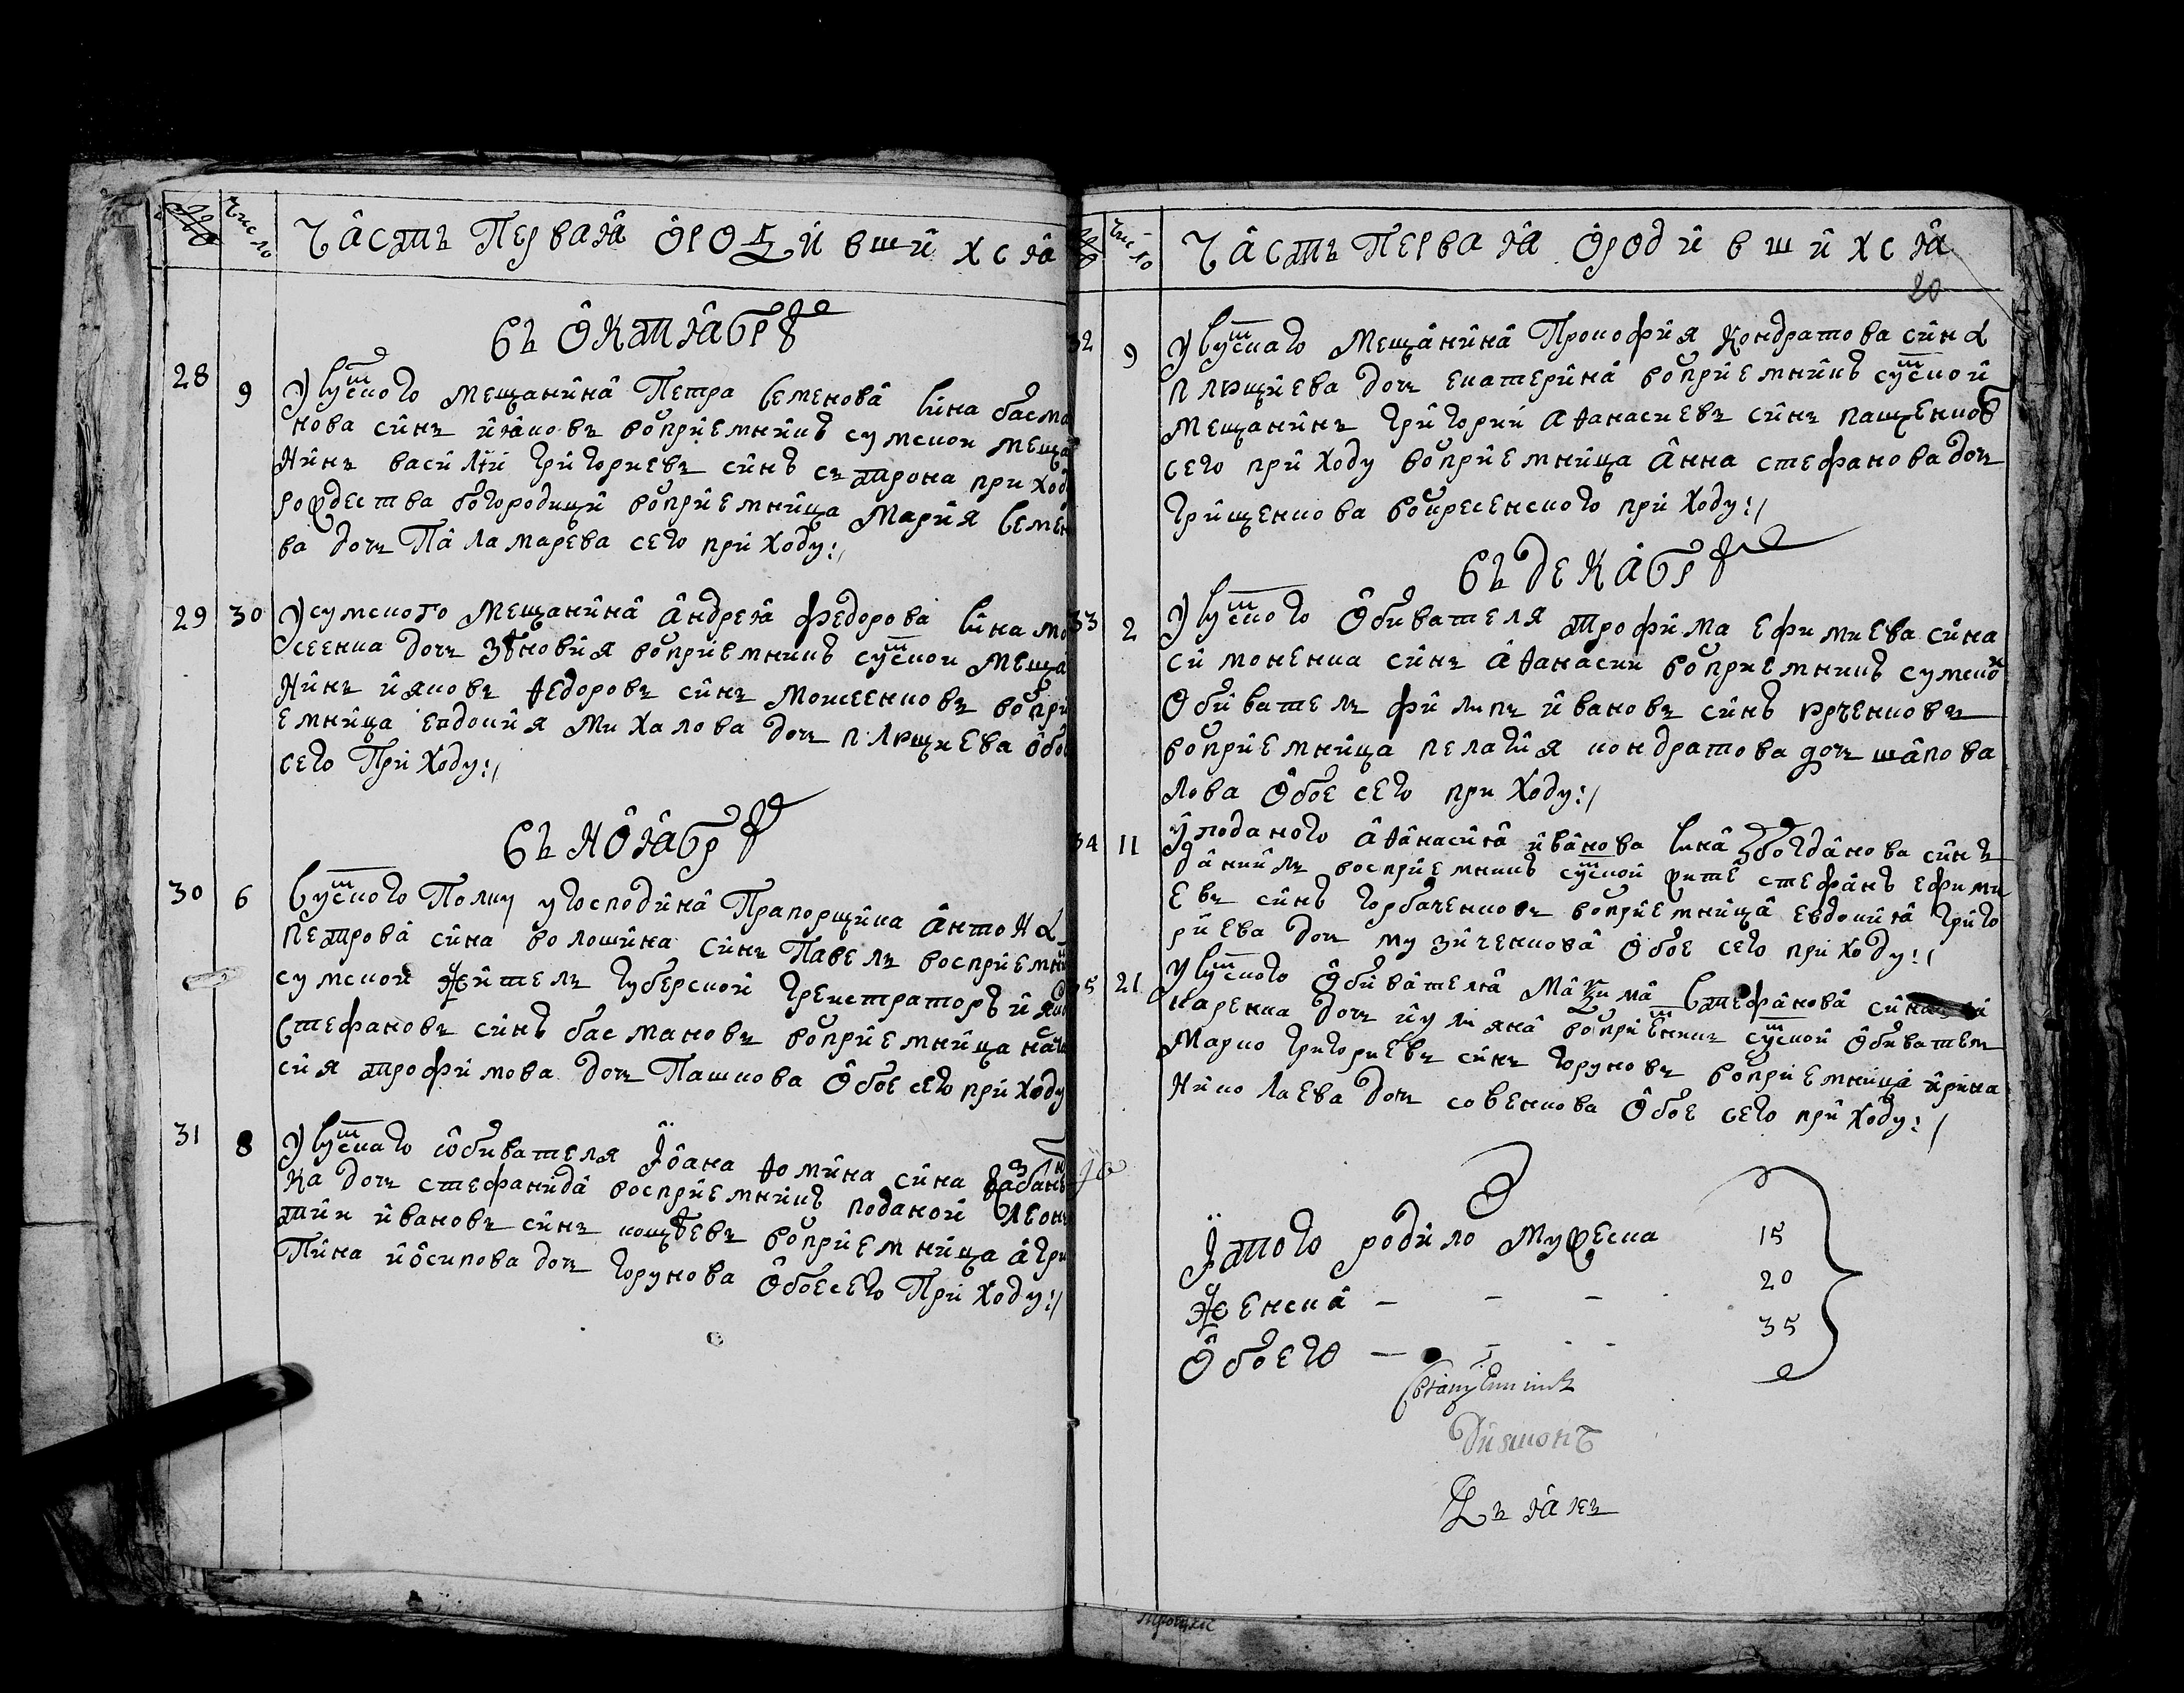 Число
Часть Первая ѡродившихся
въ Октябрѣ
28 9 У сумского мещанина Петра Семенова сина басма
нова синъ ияковъ восприемникъ сумской меща
нинъ василий григориевъ синъ сътрона приход
рождества богородици восприемница Мария Семен
ва дочъ Паламарева сего приходу:/
29 30 У сумского мещанина андрея федорова сина мо
сеенка дочъ зѣновия восприемникъ сумской меща
нинъ ияковъ ѳедоровъ синъ мокеенковъ воспри
емница евдокия Михалова дочъ плющиева обо
сего Приходу:/
въ Ноябрѣ
30 6 Сумского Полку у господина Прапорщика антона
петрова сина волошина синъ Павелъ восприемни
сумской жителъ губерской грекстраторъ ияко
Стефановъ синъ басмановъ восприемница наста
сия трофимова дочъ Пашкова обое сего приходу
31 8 У сумскаго обивателя Іоана ѳомина сина
ка дочъ стефанида восприемникъ поданой леон
тий ивановъ синъ кощѣевъ восприемница агри
пина иосипова дочъ горунова обое сего Приходу:/
Число
Часть Первая ѡродившихся
20
32 9 У сумскаго мещанина Прокофия Кондратова сина
плющиева дочъ екатерина восприемникъ сумской
мещанинъ григорий аѳанасиевъ синъ пащенков
сего приходу восприемница анна стефанова дочъ
грищенкова воскресенского приходу:/
въ декабрѣ
33 2 У сумского обивателя трофима ефимиева сина
симоненка синъ аѳанасий восприемникъ сумской
обивателъ филипъ ивановъ синъ юрченковъ
восприемница пелагия кондратова дочъ шапова
лова обое сего приходу:/
34 11 У поданого аѳанасия иванова сина богданова синъ
даниилъ восприемникъ сумской жите стефанъ ефими
евъ синъ горбаченковъ восприемница евдокия григо
риева дочъ музиченкова обое сего приходу:/
35 21 У сумского обивателя Максима Стефанова сина
каренка дочъ иулияна восприемникъ сумской обивателъ
Марко григориевъ синъ горуновъ восприемница ирина
николаева дочъ совенкова обое сего приходу:/
Ітого родило мужеска 15
Женска — — — 20
Обоего — — - - 35
Священникъ
Дияконъ